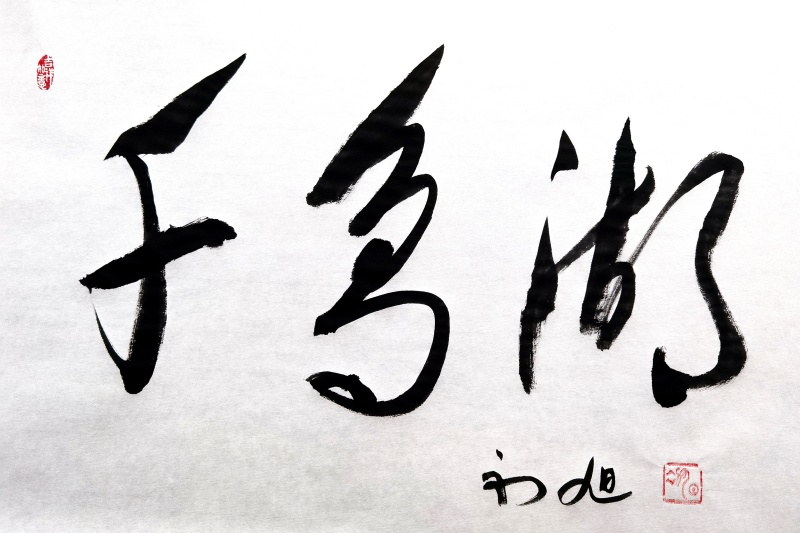 千岛湖
刘旭